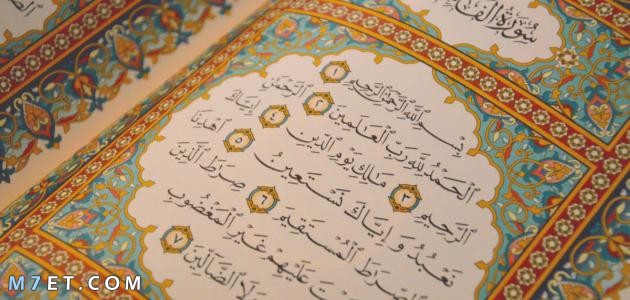 سُورَةُ
بِسْمِ ٱللَّهِ ٱلرَّحْمَٰنِ ٱلرَّحِيمِ ١
ٱلْحَمْدُ لِلَّهِ رَبِّ ٱلْعَٰلَمِينَ ٢ ٱلرَّحْمَٰنِ
ٱلرَّحِيمِ ٣ مَٰلِكِ يَوْمِ ٱلدِّينِ ٤ إِيَّاكَ
نَعْبُدُ وَإِيَّاكَ نَسْتَعِينُ ٥ ٱهْدِنَا
ٱلصِّرَٰطَ ٱلْمُسْتَقِيمَ ٦ صِرَٰطَ ٱلَّذِينَ
عَلَيْهِمْ غَيْرِ ٱلْمَغْضُوبِ
وَلَا ٱلضَّآلِّينَ ٧
M7ET.COM